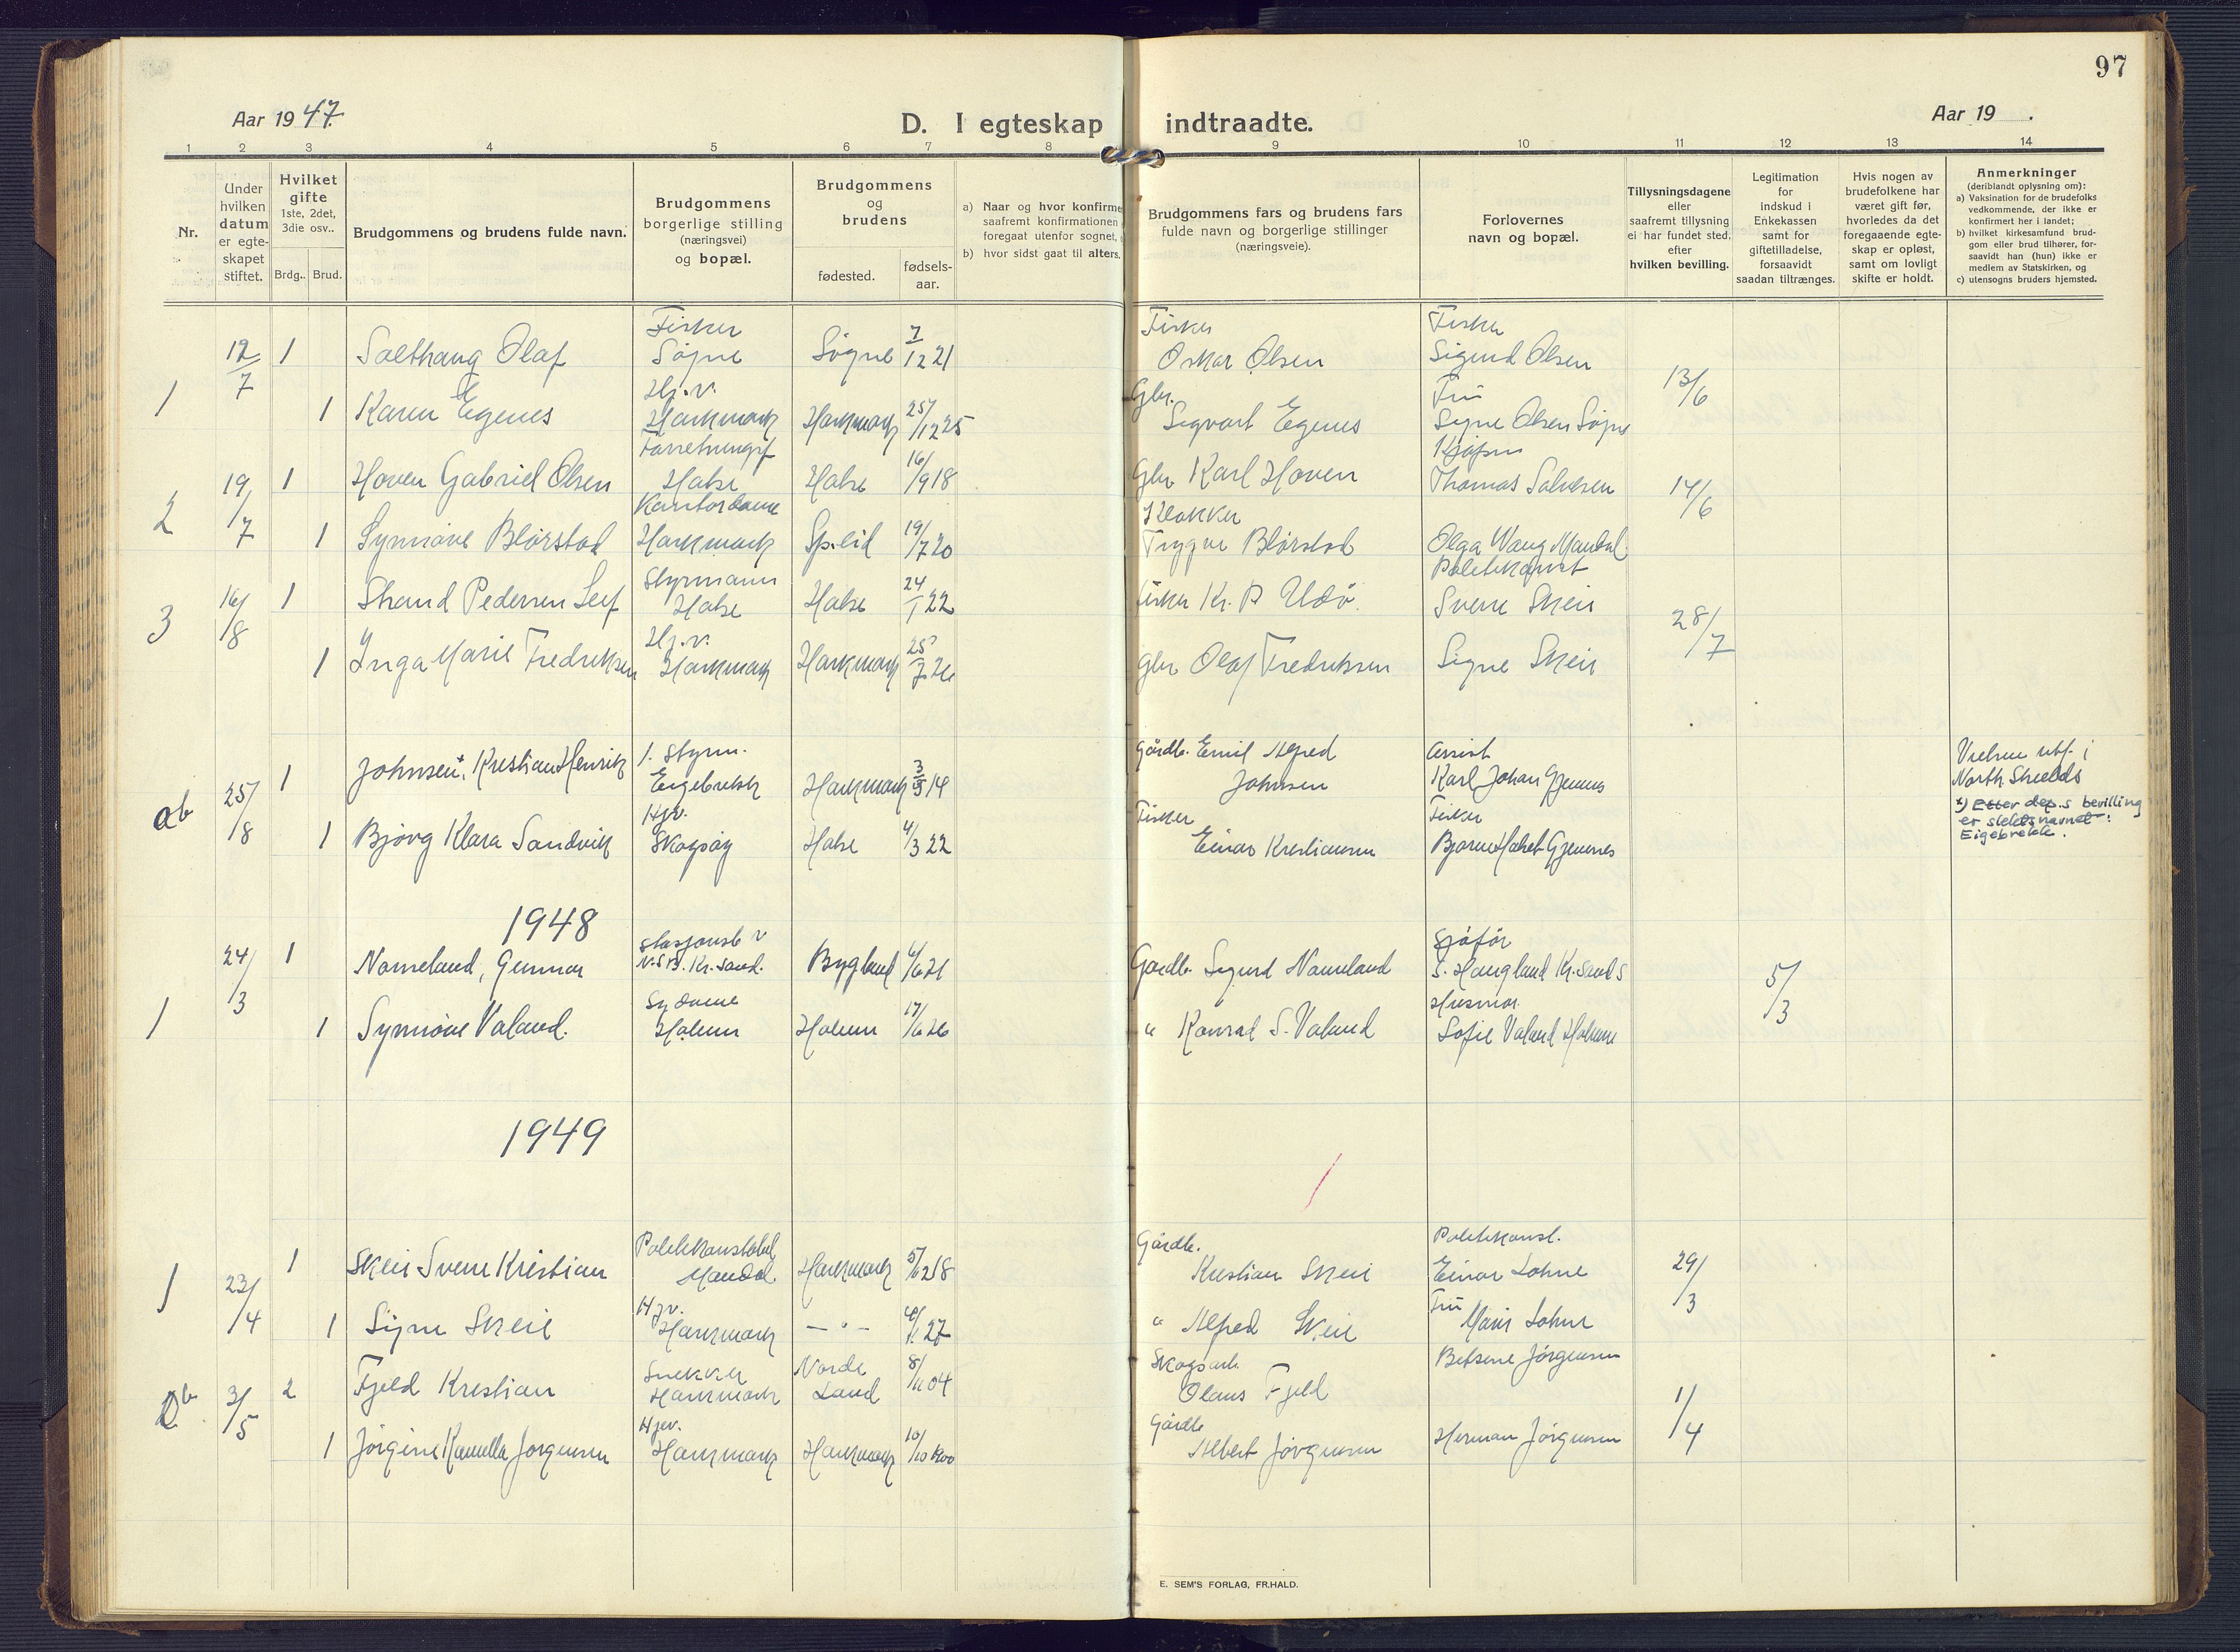 97
Aar 1947.
D. I egteskap indtraadte.
Aar 19 .
1 2 3 4 5 6 7 8 9 10 11 12 13 14
Nr.
Under
hvilken
datum
er egte-
skapet
stiftet.
Hvilket
gifte
1ste, 2det,
3die osv..
Brdg.. Brud.
Brudgommens og brudens fulde navn.
Brudgommens
borgerlige stilling
(næringsvei)
og bopæl.
Brudgommens
og
brudens
fødested.
fødsels-
aar.
a) Naar og hvor konfirme
saafremt konfirmationen
foregaat utenfor sognet,
b) hvor sidst gaat til alters.
Brudgommens fars og brudens fars
fulde navn og borgerlige stillinger
(næringsveie).
Forlovernes
navn og bopæl.
Tillysningsdagene
eller
saafremt tillysning
ei har fundet sted,
efter
hvilken bevilling.
Legitimation
for
indskud i
Enkekassen
samt for
giftetilladelse,
forsaavidt
saadan tiltrænges.
Hvis nogen av
brudefolkene har
været gift før,
hvorledes da det
foregaaende egte-
skap er opløst,
samt om lovligt
skifte er holdt.
Anmerkninger
(deriblandt oplysning om):
a) Vaksination for de brudefolks
vedkommende, der ikke er
konfirmert her i landet;
b) hvilket kirkesamfund brud-
gom eller brud tilhører, for-
saavidt han (hun) ikke er
medlem av Statskirken, og
c) utensogns bruders hjemsted.
Fisker 7 Fisker Fisker
12/7 1 Salthaug Olaf Søgne Søgne /12 21 Oskar Olsen Sigurd Olsen
1 Hj.v. Gbr. Fru 13/6
1 Karen Egenes Harkmark Harkmark 25/12 25 Sigvart Egenes Signe Olsen Søgne
Forretningsf Kjøpm
19/7 1 Hoven Gabriel Olsen Halse Halse 16/9 18 Gbr Karl Hoven Thomas Salvesen 14/6
2 Kontordame Klokker
1 Synnøve Blørstad Harkmark Sp.eid 19/7 20 Trygve Blørstad Olga Wang Mandal
Styrmann Politikonst
3 16/8 1 Strand Pedersen Leif Halse Halse 24/1 22 Fisker Kr. P. Udø. Sverre Skeie
Hj.v. 28/7
1 Inga Marie Fredriksen Harkmark Harkmark 25/7 26 Gbr Olaf Fredriksen Signe Skeie
1 Johnsen*, Kristian Henrik 1. Styrm. Gårdb. Emil Alfred Assist Vielsen utf. i
ab 25/8 Eigebrekk Harkmark 3/9 14 Johnsen Karl Johan Gjennes North Shields
Hjv. Fisker Fisker *) Etter dep.s bevilling
1 Bjørg Klara Sandvik Skogsøy Halse 4/3 22 Einar Kristiansen Bjarne Gjennes er slektsnavnet:
Eigebrekk.
1948
24/3 1 Nomeland, Gunnar N.S.B. Kr.sand. Bygland 4/6 21 Gårdb. Sigurd Nomeland Sjåfør
S. Haugland Kr.sand S 5/3
1 Sydame Husmor
1 Synnøve Valand. Holum Holum 17/6 26 " Konrad S. Valand Sofie Valand Holume
1949
Politikonstabel Gårdb. Politikonst.
1 23/4 1 Skeie Sverre Kristian Mandal Harkmark 5/12 18 Kristian Skeie Einar Lohne 29/3
Hjv. Fru
1 Signe Skeie Harkmark — " — 27 " Alfred Skeie Marie Lohne
Snekker Nordre Skogsarb. Betsene Jørgensen
b 3/5 2 Fjeld Kristian Harkmark Land 8/11 04 Olaus Fjeld 1/4
Hjv. Gårdb
1 Jørgine Kamilla Jørgensen Harkmark Harkmark 10/10 1900 Albert Jørgensen Herman Jørgensen
E. SEM'S FORLAG, FR.HALD.